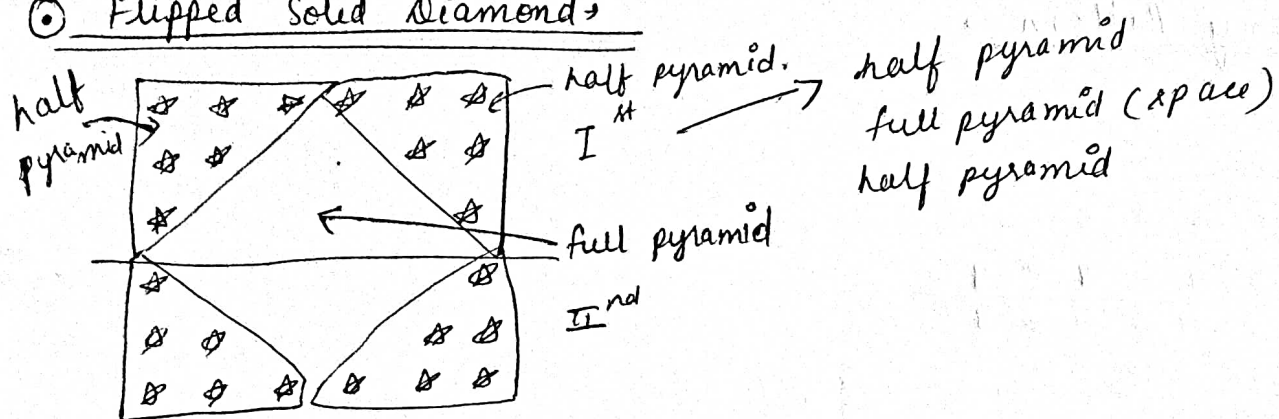 Flipped Solid Diamond,
half pyramid
half pyramid.
Ist
half pyramid
full pyramid (space)
half pyramid
full pyramid
IInd